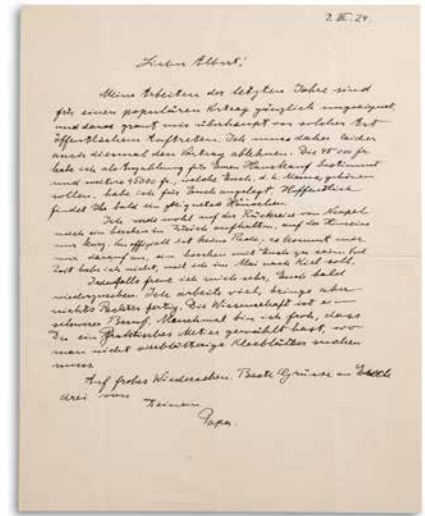 7. III. 24.
Lieber Albert!
Meine Arbeiten der letzten Jahre sind
für einen populären Vortrag gänzlich ungeeignet,
und daran graut mir überhaupt vor solcher Art
öffentlichen Auftreten. Ich muss daher leider
auch diesmal den Vortrag ablehnen. Die 45 000 fr
habe ich als Anzahlung für Euren Hauskauf bestimmt
und weitere 45000 fr., welche Euch, d. h. Mama, gehören
sollen, habe ich für Euch angelegt. Hoffentlich
findet Ihr bald ein geeignetes Häuschen.
Ich werde wohl auf der Rückreise von Neapel
noch ein bischen in Zürich aufhalten, auf der Hinreise
nur kurz. Inoffiziell ist keine Rede; es kommt mir
nur darauf an, ein bischen mit Euch zu sein. Viel
Zeit habe ich nicht, weil ich im Mai nach Kiel soll.
Jedenfalls freue ich mich sehr, Euch bald
wiederzusehen. Ich arbeite viel, bringe aber
nichts Rechtes fertig. Die Wissenschaft ist ein
schwerer Beruf. Manchmal bin ich froh, dass
Du ein Praktisches gewählt hast, wo
man nicht vierblättrige Kleeblätter suchen
muss.
Auf frohes Wiedersehen. Beste Grüsse an Euch
drei von
Deinem
Papa.